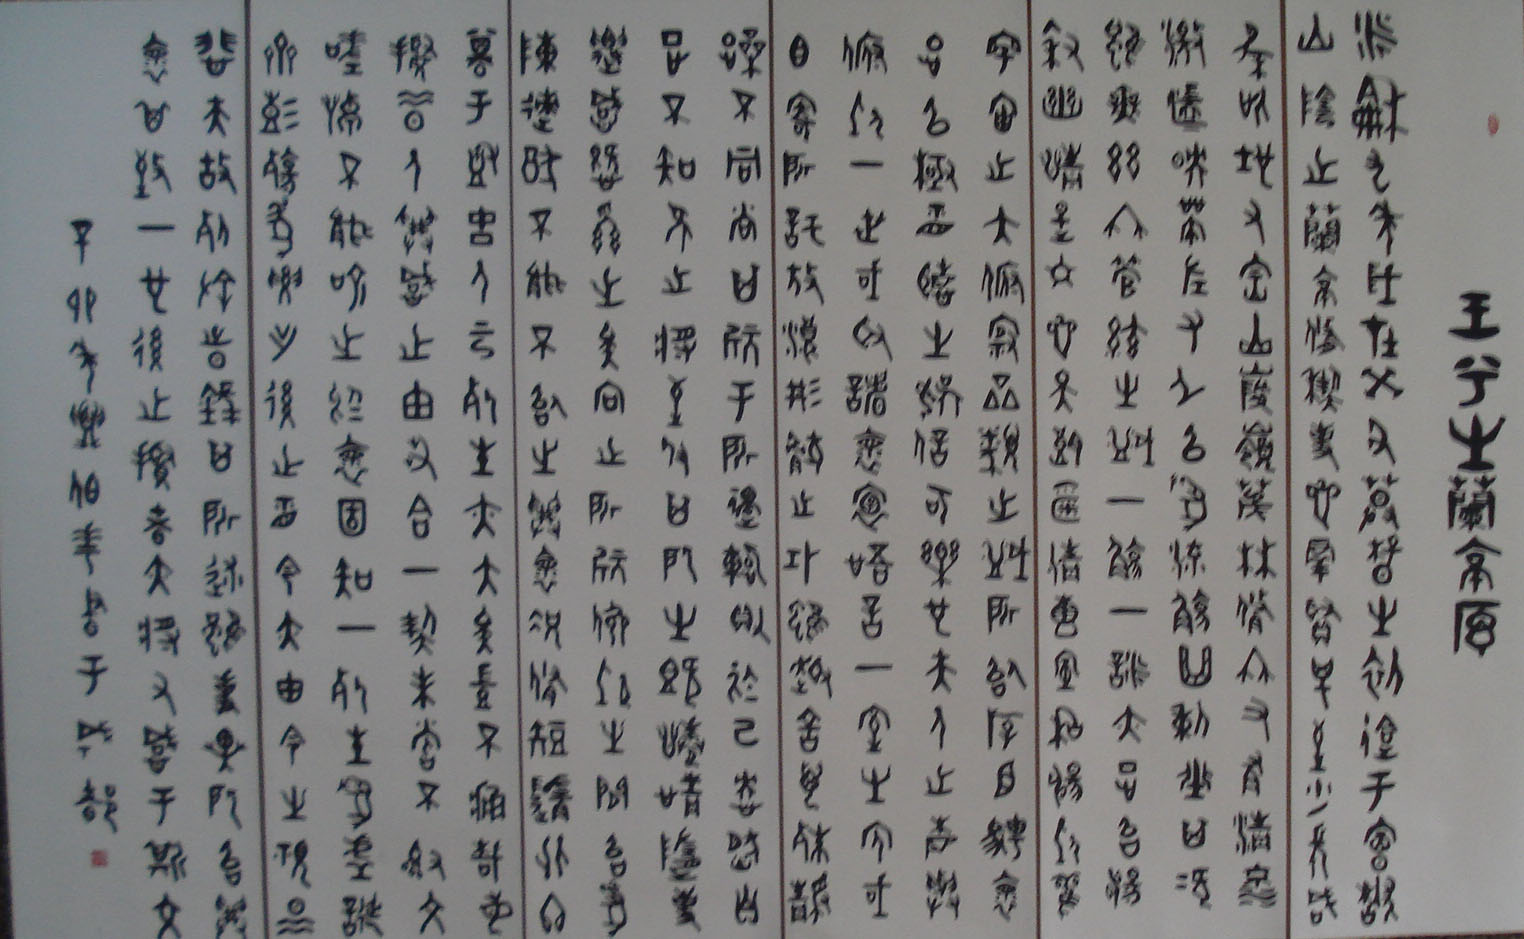 王兮之蘭亭序
永龢九年歲在癸丑暮春之初會于會稽
山陰之蘭亭脩禊事也羣賢畢至少長咸
集此地有崇山峻嶺茂林脩竹又有清流
激湍暎帶左右引以爲流觴曲列坐其次
雖無絲竹管絃之盛一觴一詠亦足以暢
敘幽情是日也天朗氣清惠風和暢仰觀
宇宙之大俯察品類之盛所以遊目騁懷
足以極視聽之娛信可樂也夫人之相與
俯仰一世或取諸懷抱悟言一室之內或
因寄所託放浪形骸之外雖趣舍萬殊靜
躁不同當其欣于所遇暫得於己快然自
足不知老之將至及其所之既倦情隨事
遷感慨係之矣向之所欣俛仰之間以爲
陳迹猶不能不以之興懷況脩短隨化終
期于盡古人云死生亦大矣豈不痛哉每
攬昔人興感之由若合一契未嘗不臨文
嗟悼不能喻之於懷固知一死生爲虛誕
齊彭殤爲妄作後之視今亦由今之視昔
悲夫故列敘時錄其所述雖事異所以興
懷其致一也後之攬者亦將有感于斯文
辛卯年伯華書于